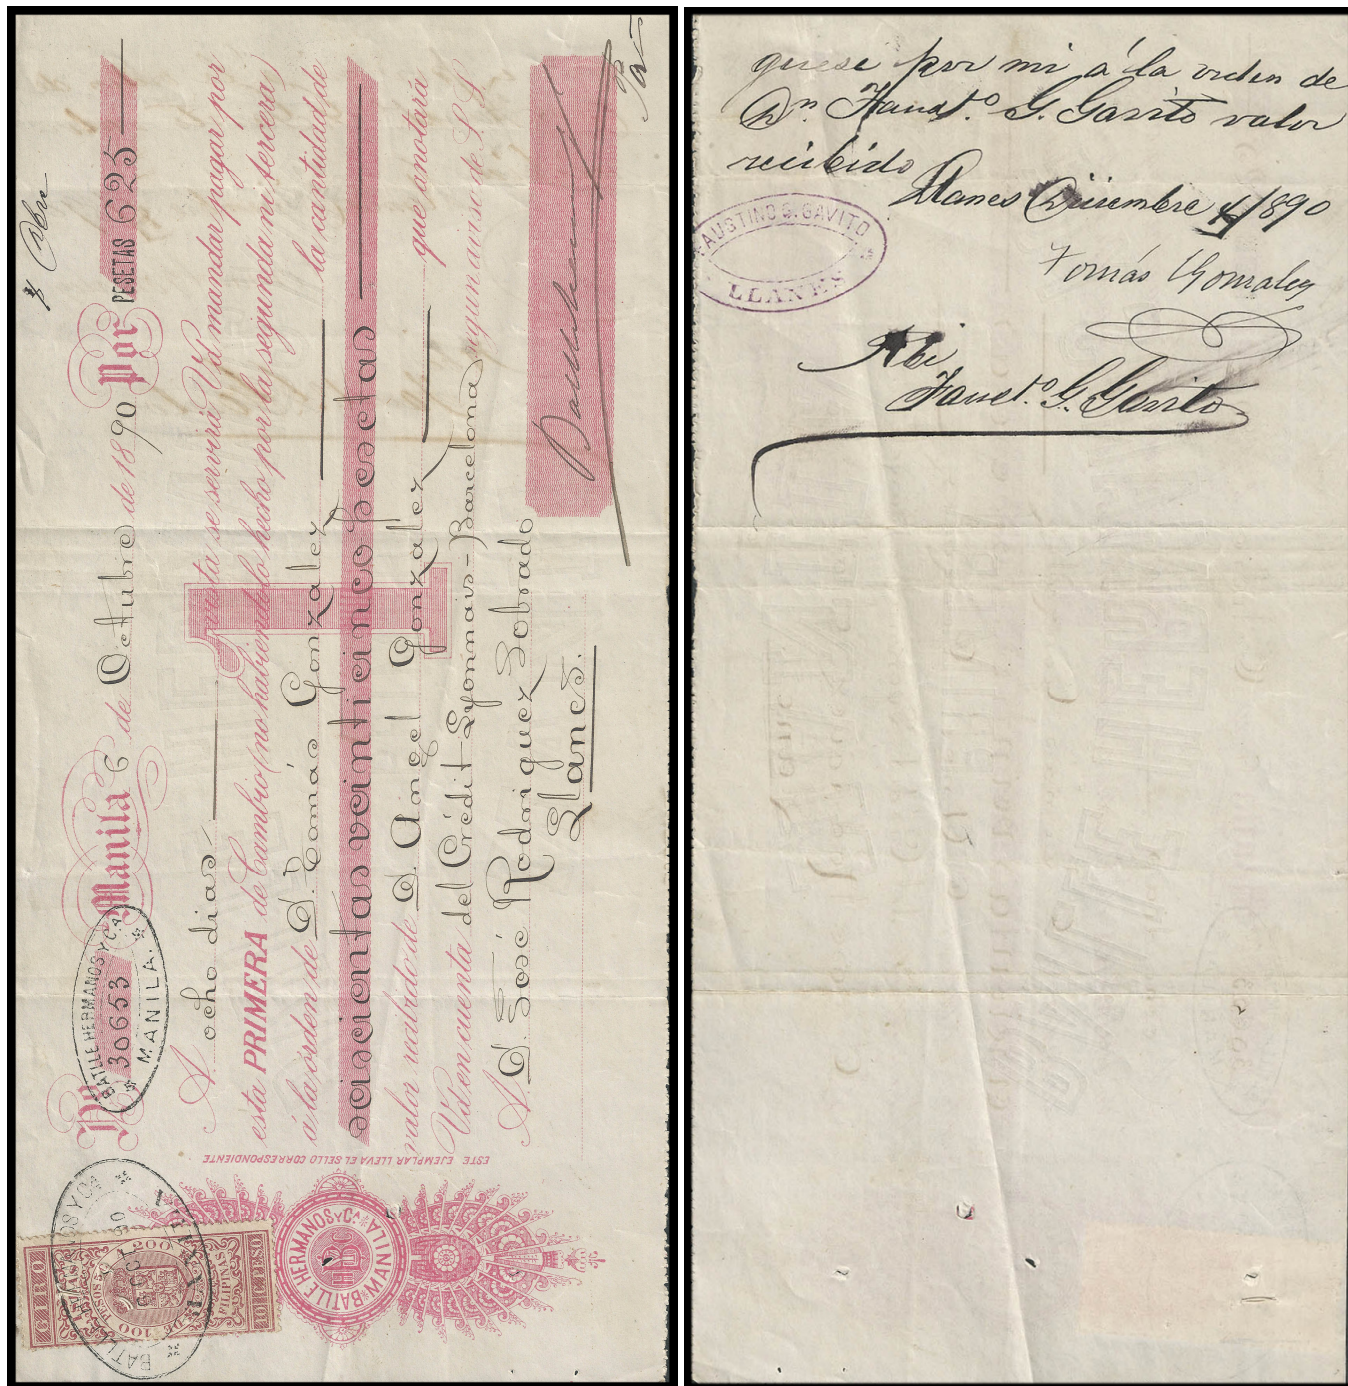 Nº 30653 Manila 6 de Octubre de 1890 Por PESETAS 625
BATLLE HERMANOS Y Cª
MANILA.
A ocho dias vista se servirá Vd mandar pagar por
esta PRIMERA de Cambio (no habiendolo hecho por la segunda ni tercera)
á la orden de D. Tomás Gonzalez la cantidad de
seiscientas veinticinco pesetas
valor recibido de D. Angel Gonzalez que anotará
Vd en cuenta del Crédit Lyonnais - Barcelona segun aviso de S. S.
A D. José Rodriguez Sobrado
Llanes.
ESTE EJEMPLAR LLEVA EL SELLO CORRESPONDIENTE
BATLLE HERMANOS Y Cª
MANILA
GIRO
200
DE 100
PESOS
FILIPINAS
guese por mi á la orden de
Dn Faustº. G. Gavito valor
recibido
Llanes Diciembre 4/1890
Tomás Gonzalez
FAUSTINO G. GAVITO
LLANES
Rbi
Faustº. G. Gavito